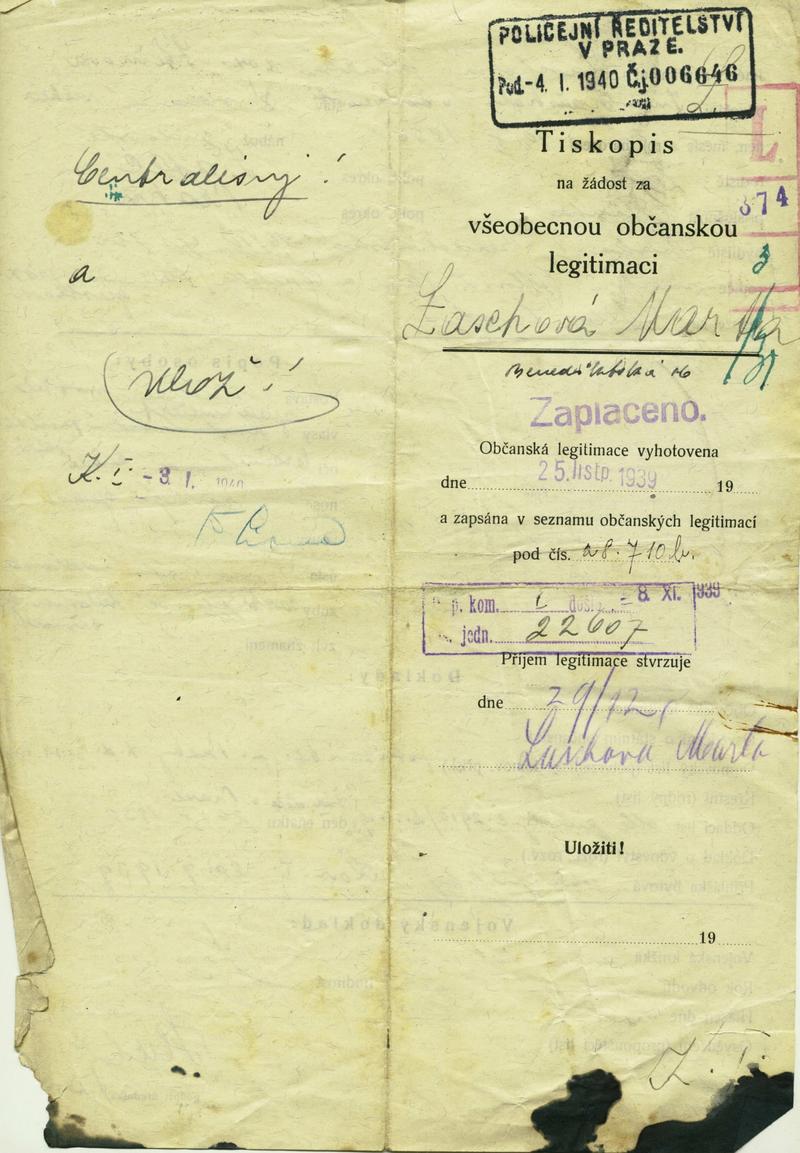 Centralisuj!
a
ulož!
K. I. - 3. I. 1940
POLICEJNÍ ŘEDITELSTVÍ
V PRAZE.
Pod. -4. I. 1940 Čj. 006646
L
Tiskopis
na žádost za
874
všeobecnou občanskou
legitimaci
Laschová Marta
Benediktská
Zaplaceno.
Občanská legitimace vyhotovena
dne 25. listp. 1939 19
a zapsána v seznamu občanských legitimací
pod čís. 28.710
p. kom. I došlo - 8. XI. 1939
jedn. 22607
Příjem legitimace stvrzuje
dne 29/12
Laschova Marta
Uložiti!
19